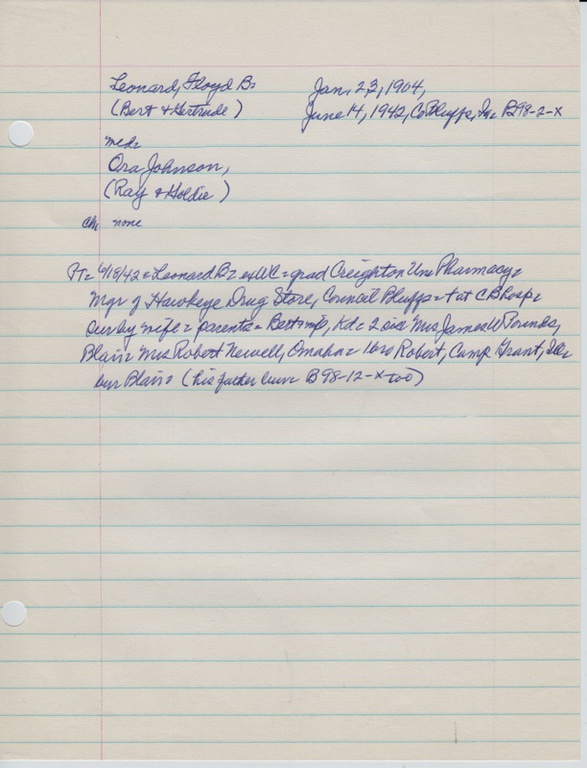 Leonard, Floyd B= Jan. 23, 1904,
(Bert + Gertrude) June 14, 1942, Co Bluffs, Ia= B98-2-X
md=
Ora Johnson,
(Ray + Goldie)
Ch. none
PT= 6/18/42 = Leonard B= ex WC = grad Creighton Uni Pharmacy=
Mgr of Hawkeye Drug Store, Council Bluffs = + at CB hosp=
Surv by wife = parents = Bert + wife, = 2 sis Mrs James W Pounds,
Blair= Mrs Robert Newell, Omaha= 1 bro Robert, Camp Grant, Ill=
bur Blair= (his father bur= B98-12-X too)